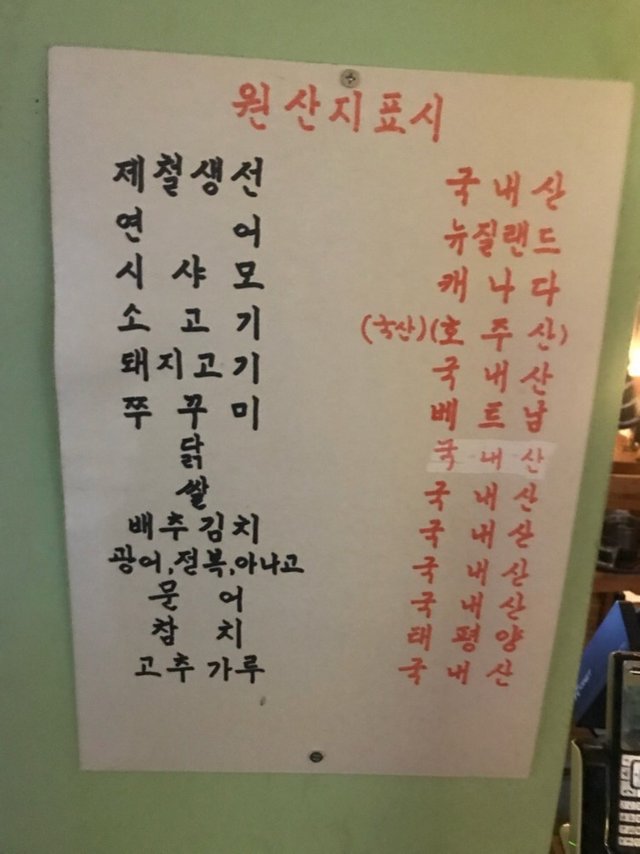 원산지표시
제철생선 국내산
연어 뉴질랜드
시샤모 캐나다
소고기 (국산)(호주산)
돼지고기 국내산
쭈꾸미 베트남
닭 국내산
쌀 국내산
배추김치 국내산
광어,전복,아나고 국내산
문어 국내산
참치 태평양
고추가루 국내산